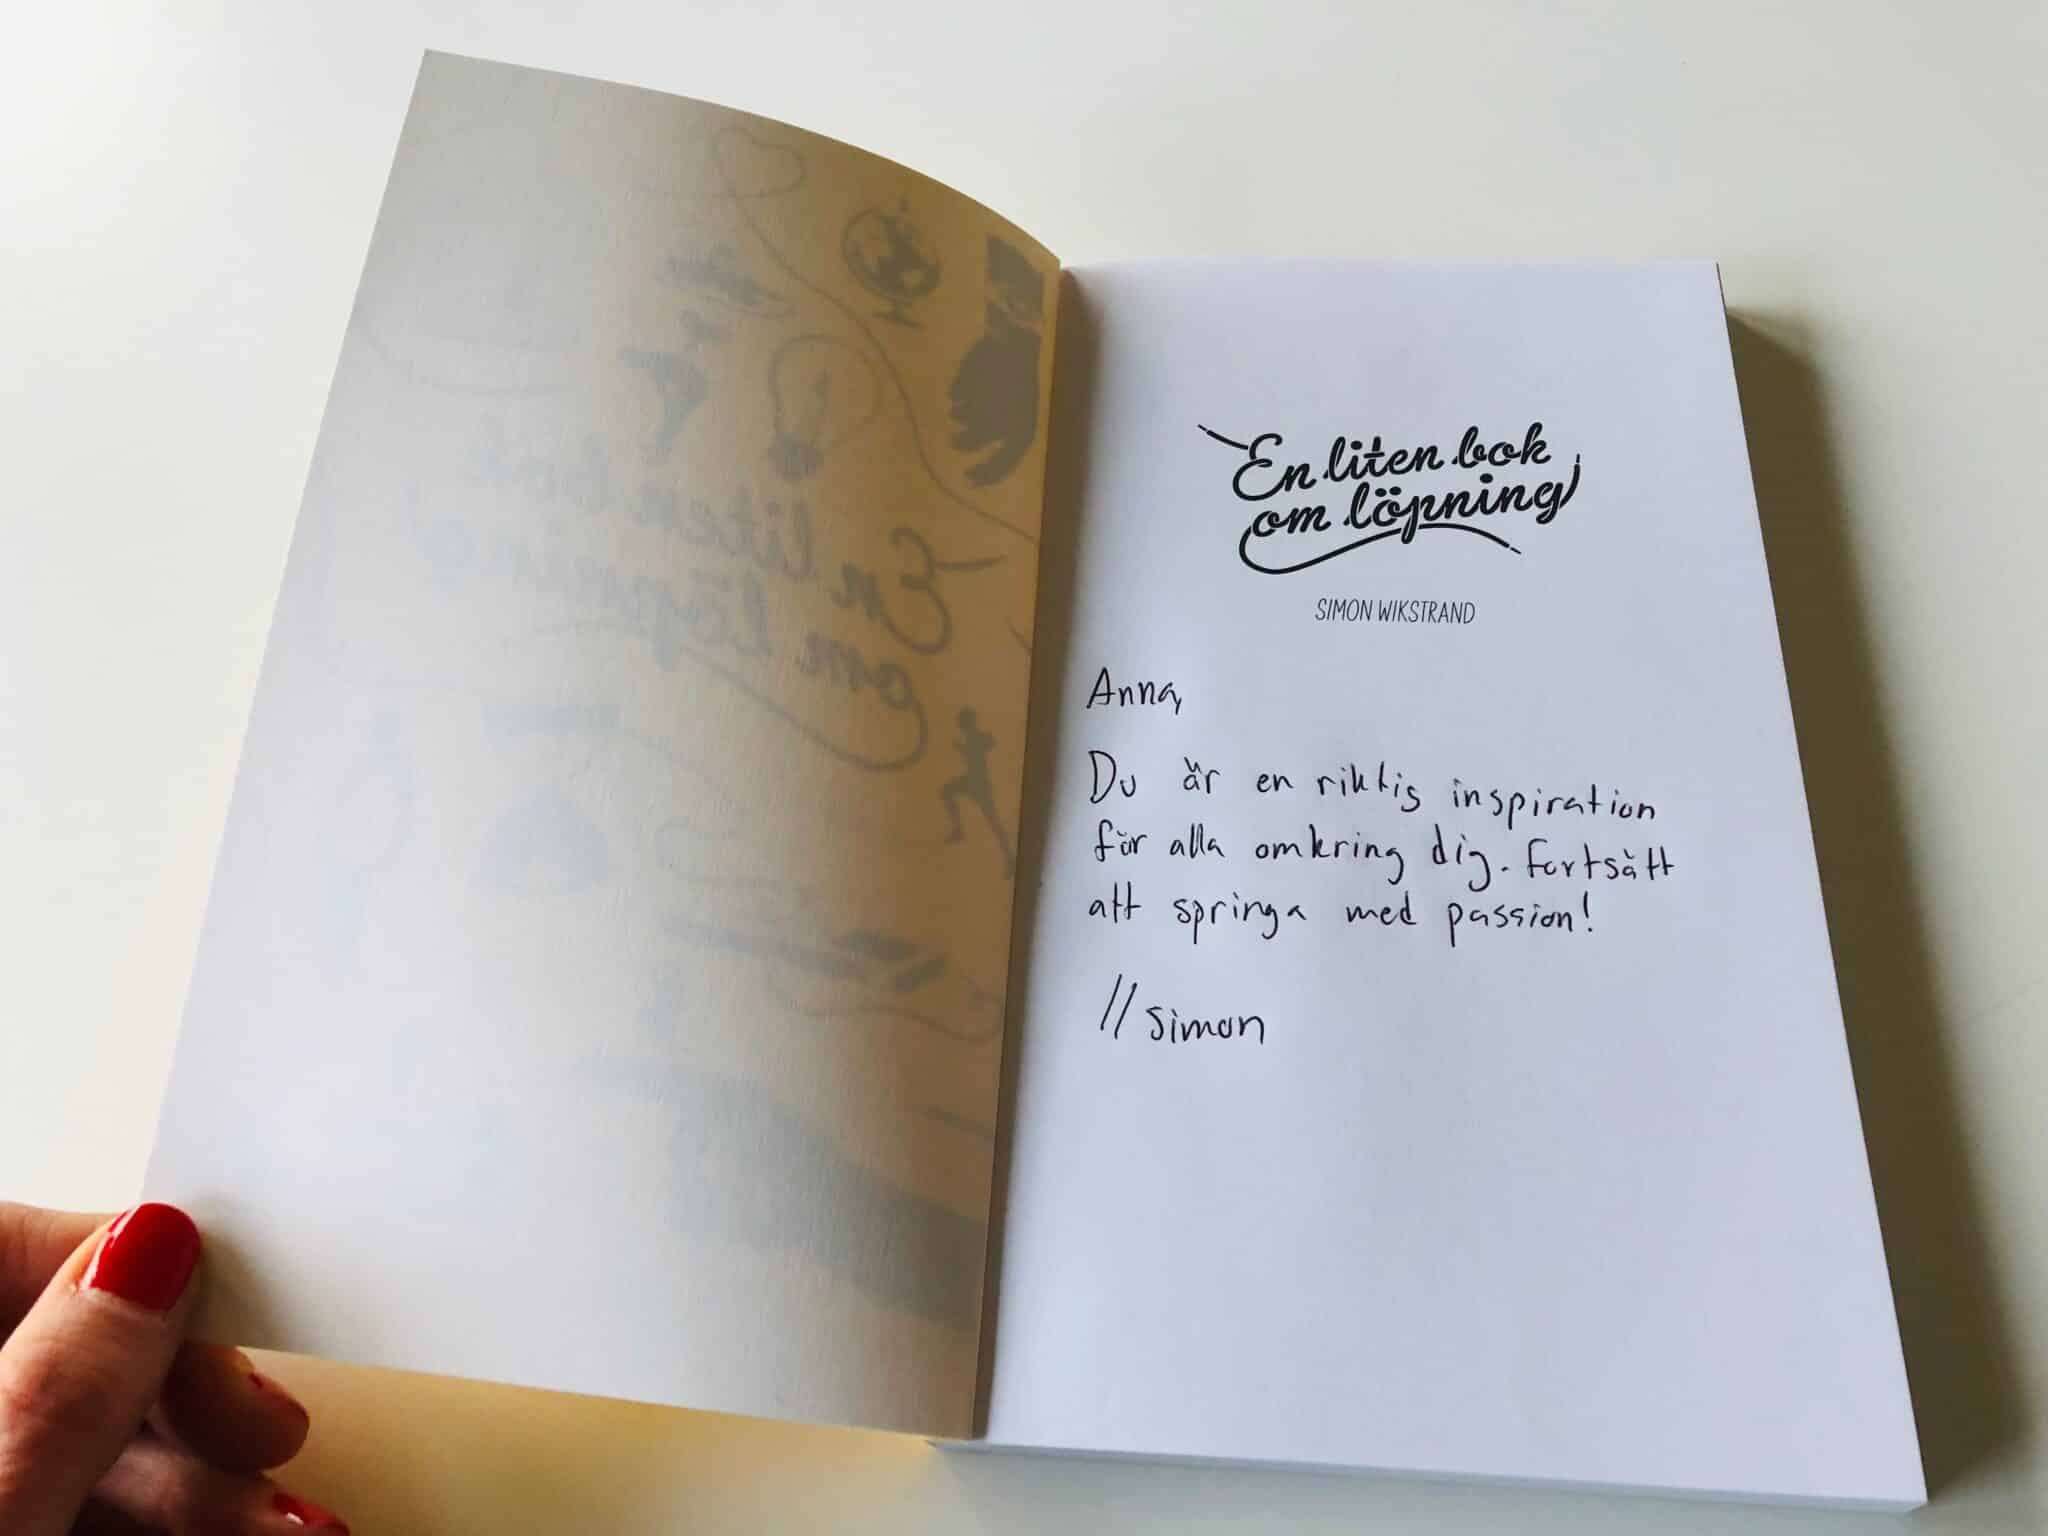 En liten bok
om löpning
SIMON WIKSTRAND
Anna,
Du är en riktig inspiration
för alla omkring dig. Fortsätt
att springa med passion!
// Simon